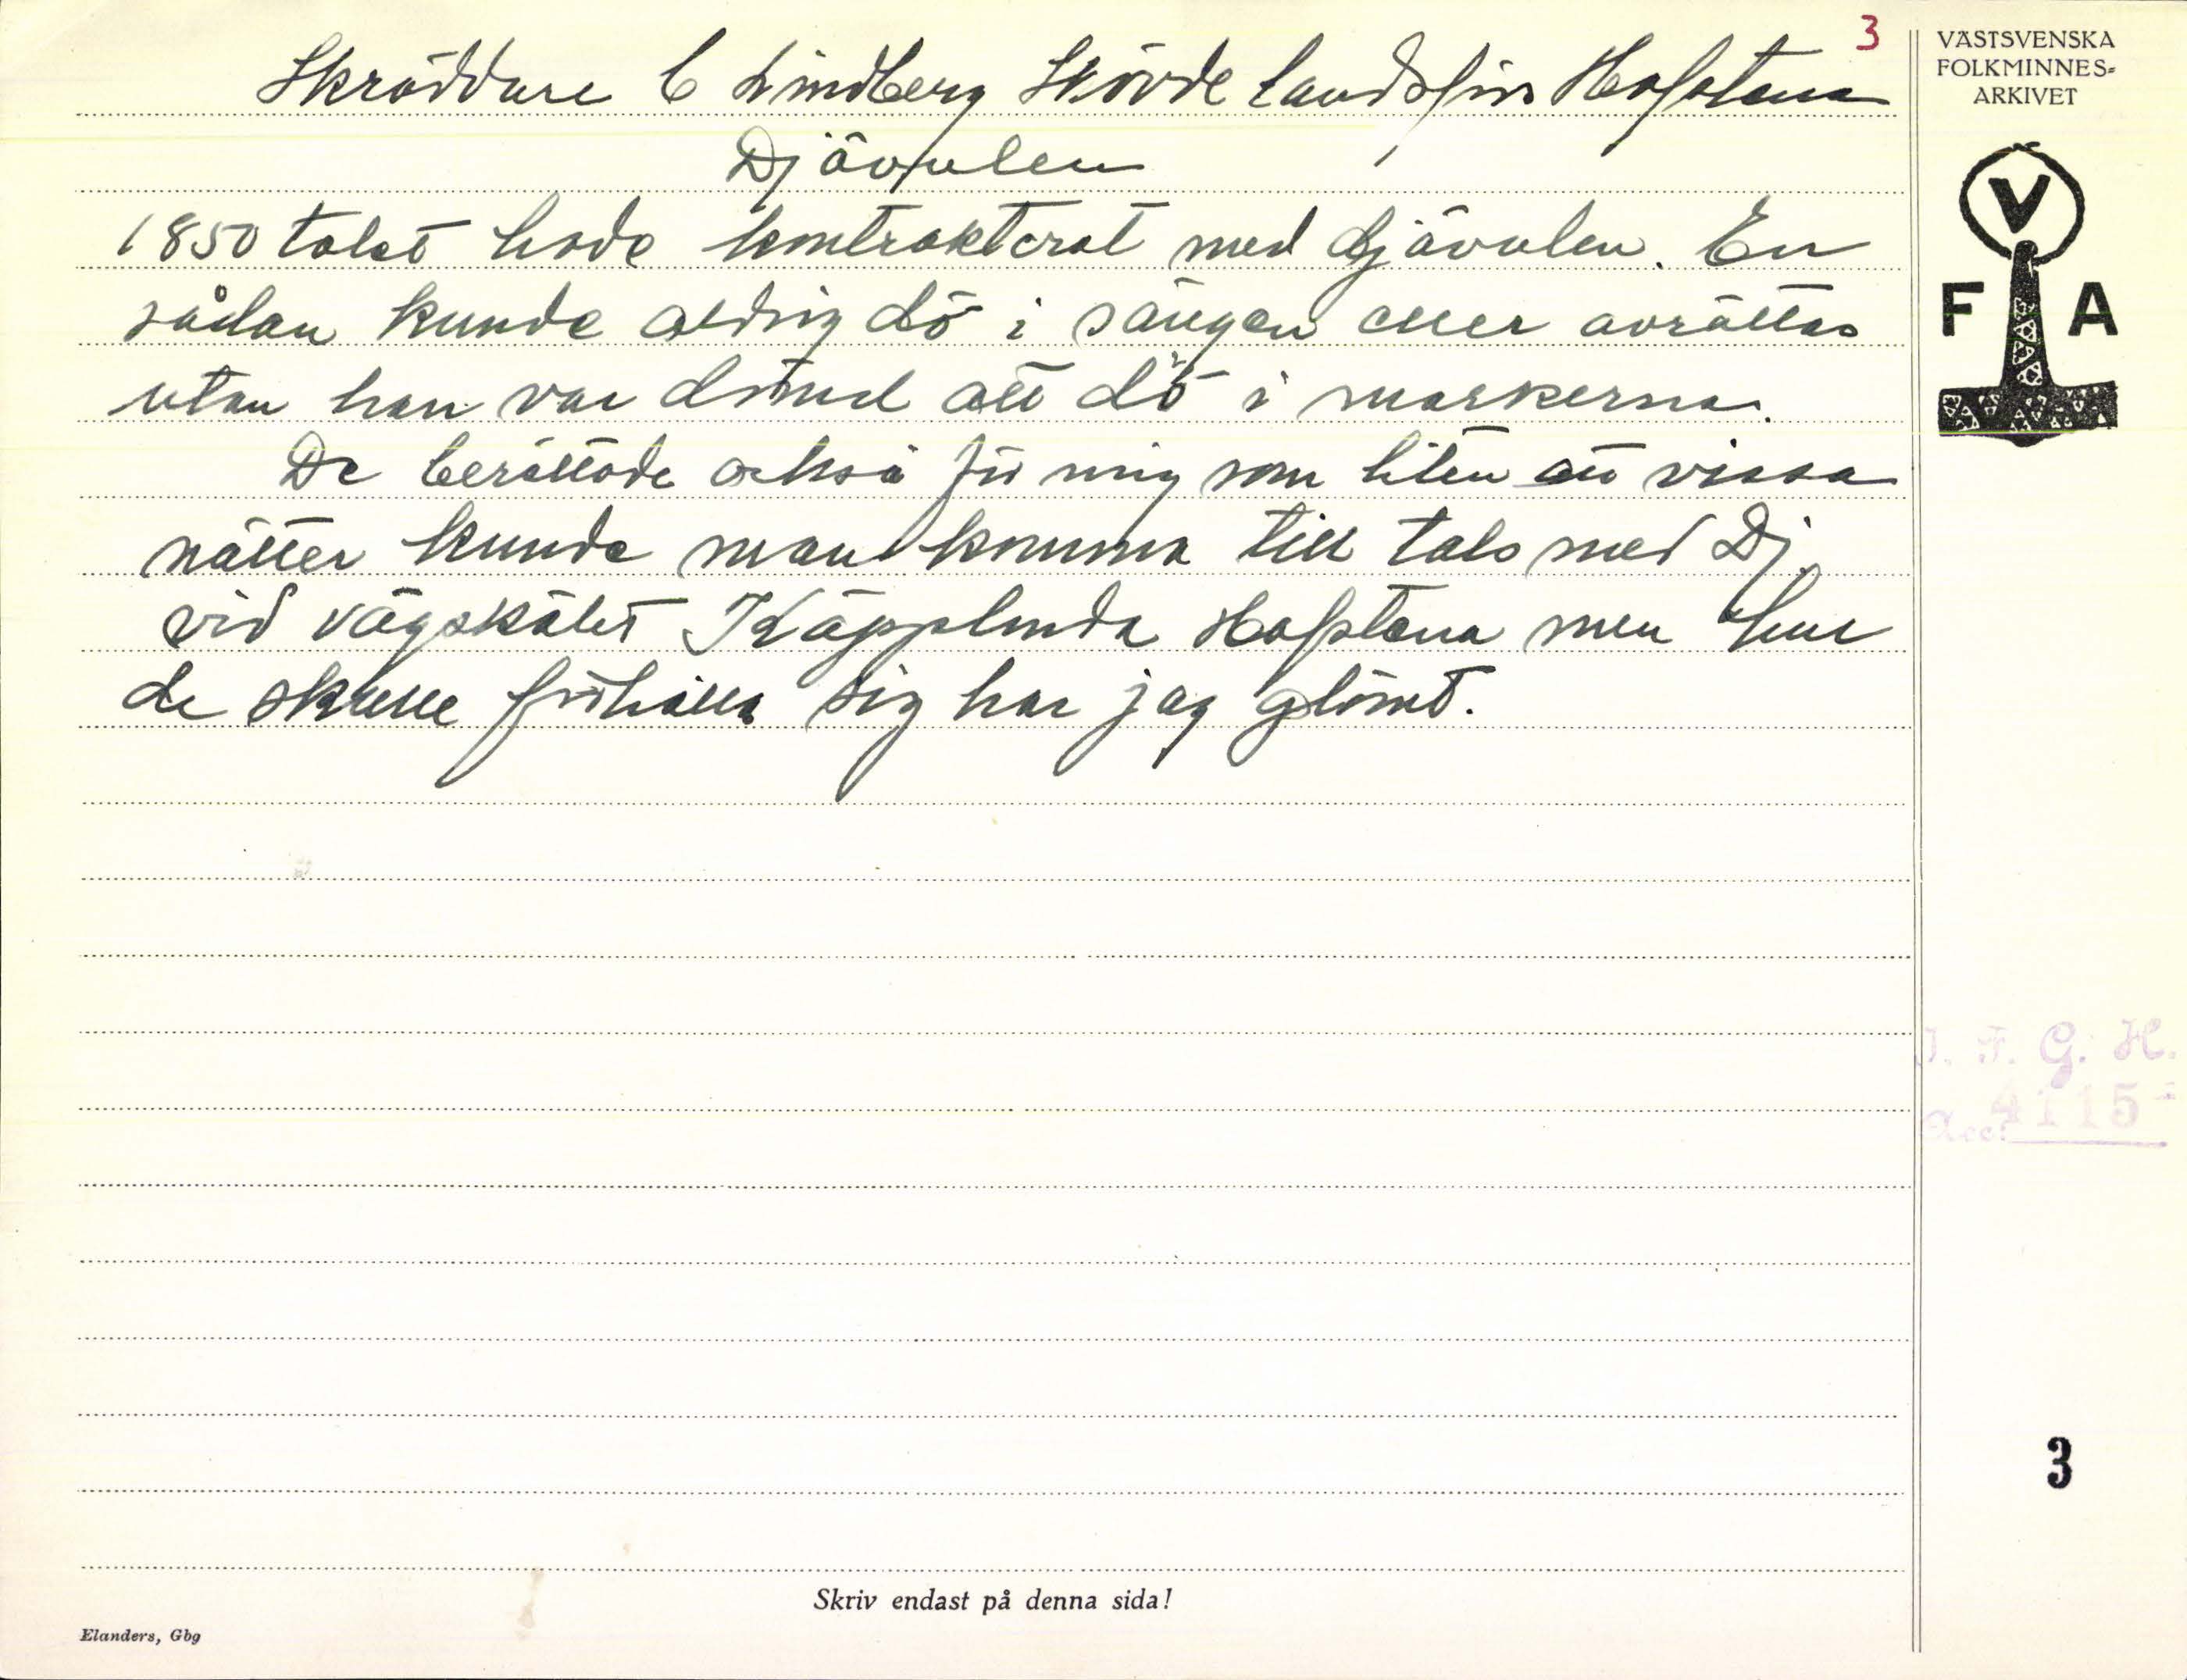 3
Skräddare C Lindberg Skövde Landsförs Hofstena
Djävulen
1850 talet hade kontrakterat med djävulen. En
sådan kunde aldrig dö i sängen eller avrättas
utan han var dömd att dö i markerna.
De berättade också för mig som liten att vissa
nätter kunde man komma till tals med Dj.
vid vägskälet Käpplunda Hofstena men hur
de skulle förhålla sig har jag glömt.
VÄSTSVENSKA
FOLKMINNES=
ARKIVET
V
F A
I. F. G. H.
Acc. 4115
3
Skriv endast på denna sida!
Elanders, Gbg